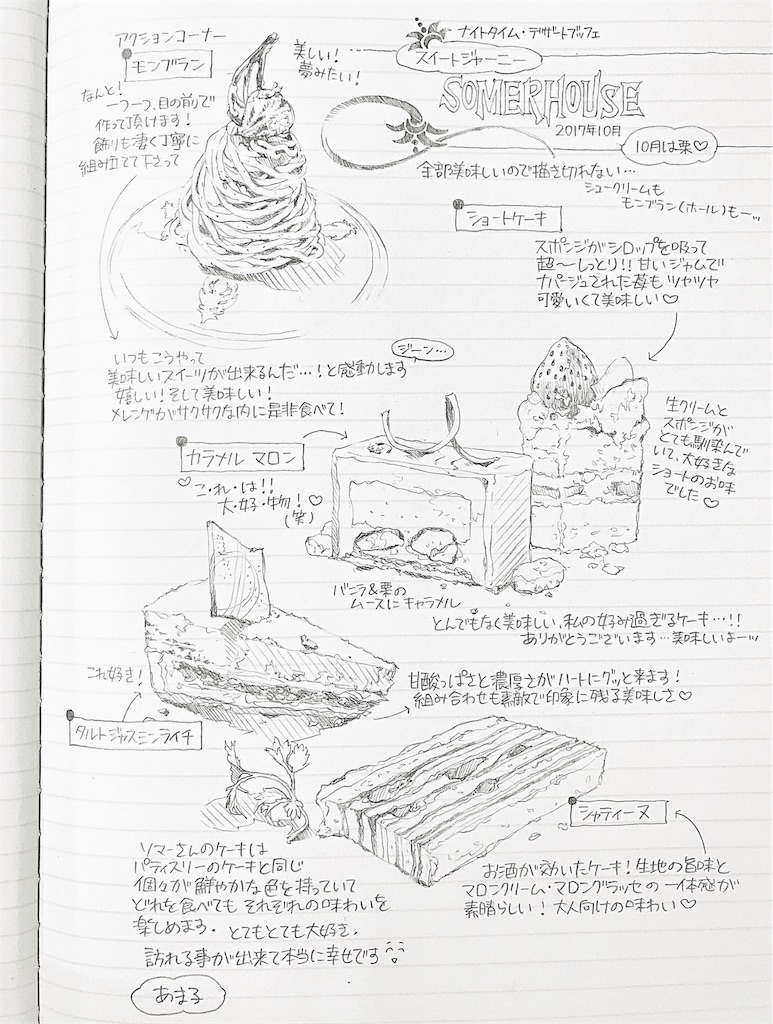 ナイトタイム・デザートブッフェ
スイートジャーニー
SOMERHOUSE
2017年10月
10月は栗♡
全部美味しいので描き切れない…
シュークリームも
モンブラン(ホール)もーッ
アクションコーナー
モンブラン
美しい!
夢みたい!
なんと!
一つ一つ、目の前で
作って頂けます!
飾りも凄く丁寧に
組み立てて下さって
いつもこうやって
美味しいスイーツが出来るんだ…!と感動します
ジーン…
嬉しい!そして美味しい!
メレンゲがサクサクな内に是非食べて!
ショートケーキ
スポンジがシロップを吸って
超〜しっとり!!甘いジャムで
ナパージュされた苺もツヤツヤ
可愛いくて美味しい♡
生クリームと
スポンジが
とても馴染んで
いて、大好きな
ショートのお味
でした♡
カラメル マロン
♡こ・れ・は!!
大・好・物!♡
(笑)
バニラ&栗の
ムースにキャラメル
とんでもなく美味しい、私の好み過ぎるケーキ…!!
ありがとうございます…美味しいよーッ
これ好き!
タルトジャスミンライチ
甘酸っぱさと濃厚さがハートにグッと来ます!
組み合わせも素敵で印象に残る美味しさ♡
シャティーヌ
お酒が効いたケーキ!生地の旨味と
マロンクリーム・マロングラッセの一体感が
素晴らしい!大人向けの味わい♡
ソマーさんのケーキは
パティスリーのケーキと同じ
個々が鮮やかな色を持っていて
どれを食べても それぞれの味わいを
楽しめます. とてもとても大好き.
訪れる事が出来て本当に幸せです
あま子